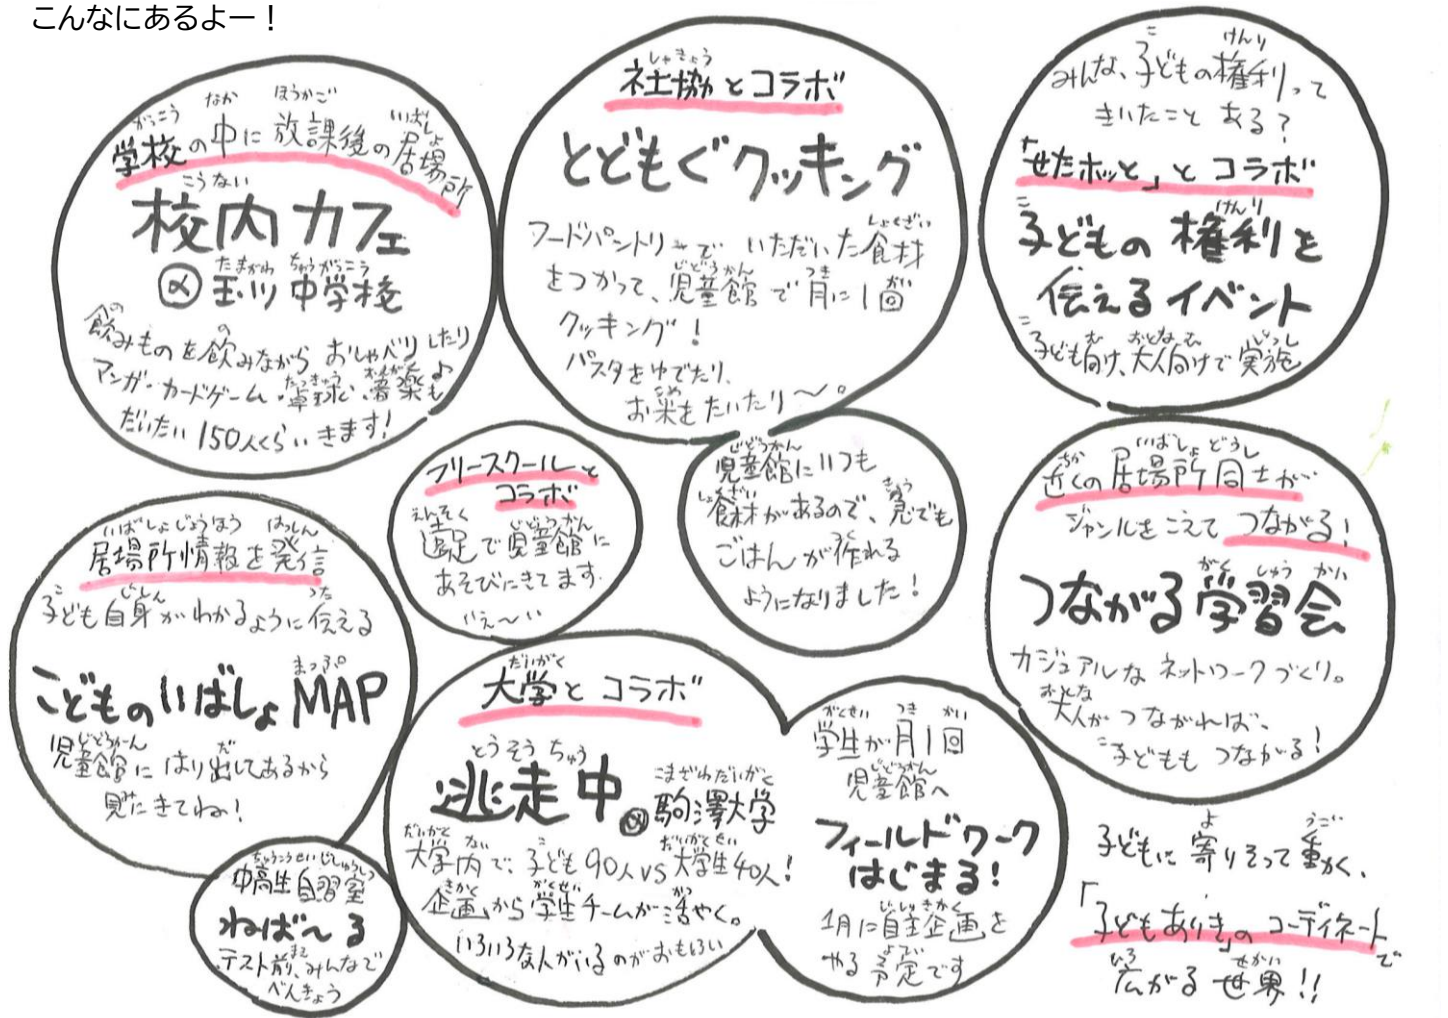 こんなにあるよー！
学校の中に放課後の居場所
校内カフェ
@玉川中学校
飲みものを飲みながらおしゃべりしたり
マンガ・カードゲーム・卓球、音楽♪も
だいたい150人くらいきます!
社協とコラボ
とどもぐクッキング
フードパントリーでいただいた食材
をつかって、児童館で月に1回
クッキング!
パスタをゆでたり、
お米をたいたり〜。
みんな、子どもの権利って
きいたことある?
「せたホッと」とコラボ
子どもの権利を
伝えるイベント
子ども向け、大人向けで実施
フリースクールと
コラボ
遠足で児童館に
あそびにきてます。
いえ〜い
児童館にいつも
食材があるので、急でも
ごはんが作れる
ようになりました!
近くの居場所同士が
ジャンルをこえてつながる!
つながる学習会
カジュアルなネットワークづくり。
大人がつながれば、
子どももつながる!
居場所情報を発信
子ども自身がわかるように伝える
こどものいばしょMAP
児童館にはり出してあるから
見にきてね!
大学とコラボ
逃走中@駒澤大学
大学内で、子ども90人vs大学生40人!
企画から学生チームが活やく。
いろいろな人がいるのがおもろい
学生が月1回
児童館へ
フィールドワーク
はじまる!
1月に自主企画を
やる予定です
中高生自習室
ねば〜る
テスト前、みんなで
べんきょう
子どもに寄りそって動く、
「子どもありき」のコーディネートで
広がる世界!!